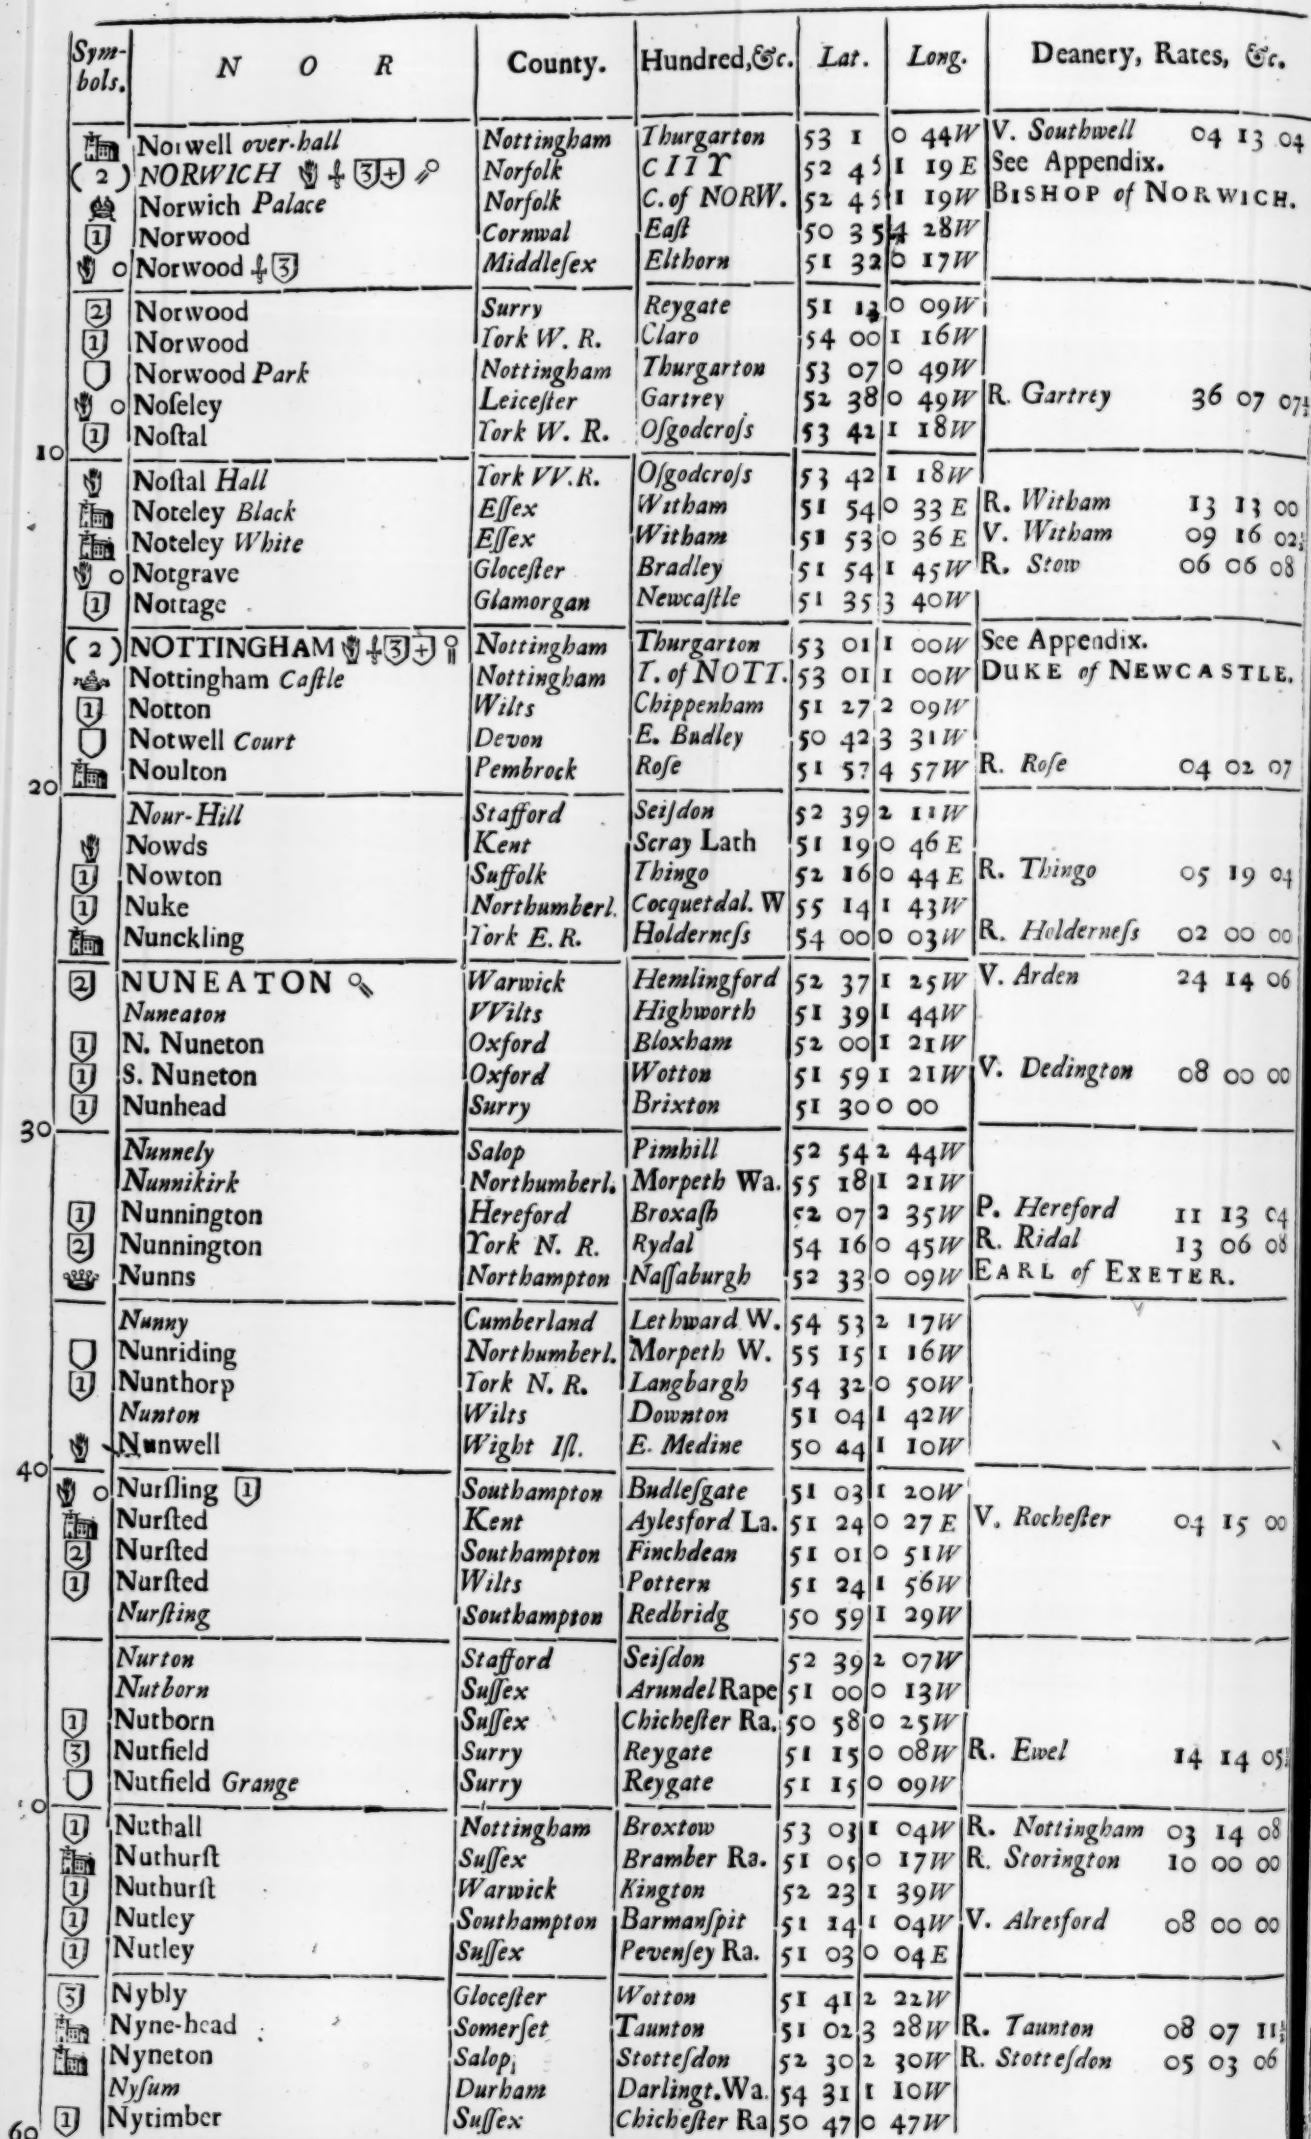 Symbols. N O R County. Hundred,&c. Lat. Long. Deanery, Rates, &c.
Norwell over-hall Nottingham Thurgarton 53 1 0 44W V. Southwell 04 13 04
(2) NORWICH 3 + Norfolk CITY 52 45 1 19 E See Appendix.
Norwich Palace Norfolk C. of NORW. 52 45 1 19W BISHOP of NORWICH.
1 Norwood Cornwal Eaſt 50 35 4 28W
o Norwood 3 Middleſex Elthorn 51 32 0 17W
2 Norwood Surry Reygate 51 13 0 09W
1 Norwood York W. R. Claro 54 00 1 16W
Norwood Park Nottingham Thurgarton 53 07 0 49W
o Noſeley Leiceſter Gartrey 52 38 0 49W R. Gartrey 36 07 07½
1 Noſtal York W. R. Oſgodcroſs 53 42 1 18W
10
Noſtal Hall York VV.R. Oſgodcroſs 53 42 1 18W
Noteley Black Eſſex Witham 51 54 0 33 E R. Witham 13 13 00
Noteley White Eſſex Witham 51 53 0 36 E V. Witham 09 16 02½
o Notgrave Gloceſter Bradley 51 54 1 45W R. Stow 06 06 08
1 Nottage Glamorgan Newcaſtle 51 35 3 40W
(2) NOTTINGHAM 3 + Nottingham Thurgarton 53 01 1 00W See Appendix.
Nottingham Caſtle Nottingham T. of NOTT. 53 01 1 00W DUKE of NEWCASTLE.
1 Notton Wilts Chippenham 51 27 2 09W
Notwell Court Devon E. Budley 50 42 3 31W
Noulton Pembrock Roſe 51 57 4 57W R. Roſe 04 02 07
20
Nour-Hill Stafford Seiſdon 52 39 2 11W
Nowds Kent Scray Lath 51 19 0 46 E
1 Nowton Suffolk Thingo 52 16 0 44 E R. Thingo 05 19 04
1 Nuke Northumberl. Cocquetdal. W 55 14 1 43W
Nunckling York E. R. Holderneſs 54 00 0 03W R. Holderneſs 02 00 00
2 NUNEATON Warwick Hemlingford 52 37 1 25W V. Arden 24 14 06
Nuneaton VVilts Highworth 51 39 1 44W
1 N. Nuneton Oxford Bloxham 52 00 1 21W
1 S. Nuneton Oxford Wotton 51 59 1 21W V. Dedington 08 00 00
1 Nunhead Surry Brixton 51 30 0 00
30
Nunnely Salop Pimhill 52 54 2 44W
Nunnikirk Northumberl. Morpeth Wa. 55 18 1 21W
1 Nunnington Hereford Broxaſh 52 07 2 35W P. Hereford 11 13 04
2 Nunnington York N. R. Rydal 54 16 0 45W R. Ridal 13 06 08
Nunns Northampton Naſſaburgh 52 33 0 09W EARL of EXETER.
Nunny Cumberland Lethward W. 54 53 2 17W
Nunriding Northumberl. Morpeth W. 55 15 1 16W
1 Nunthorp York N. R. Langbargh 54 32 0 50W
Nunton Wilts Downton 51 04 1 42W
Nunwell Wight Iſl. E. Medine 50 44 1 10W
40
o Nurſling 1 Southampton Budleſgate 51 03 1 20W
Nurſted Kent Aylesford La. 51 24 0 27 E V. Rocheſter 04 15 00
2 Nurſted Southampton Finchdean 51 01 0 51W
1 Nurſted Wilts Pottern 51 24 1 56W
Nurſting Southampton Redbridg 50 59 1 29W
Nurton Stafford Seiſdon 52 39 2 07W
Nutborn Suſſex Arundel Rape 51 00 0 13W
1 Nutborn Suſſex Chicheſter Ra. 50 58 0 25W
3 Nutfield Surry Reygate 51 15 0 08W R. Ewel 14 14 05
Nutfield Grange Surry Reygate 51 15 0 09W
0
1 Nuthall Nottingham Broxtow 53 03 1 04W R. Nottingham 03 14 08
Nuthurſt Suſſex Bramber Ra. 51 05 0 17W R. Storington 10 00 00
1 Nuthurſt Warwick Kington 52 23 1 39W
1 Nutley Southampton Barmanſpit 51 14 1 04W V. Alresford 08 00 00
1 Nutley Suſſex Pevenſey Ra. 51 03 0 04 E
3 Nybly Gloceſter Wotton 51 41 2 22W
Nyne-head Somerſet Taunton 51 02 3 28W R. Taunton 08 07 11
Nyneton Salop Stotteſdon 52 30 2 30W R. Stotteſdon 05 03 06
Nyſum Durham Darlingt. Wa. 54 31 1 10W
1 Nytimber Suſſex Chicheſter Ra 50 47 0 47W
60